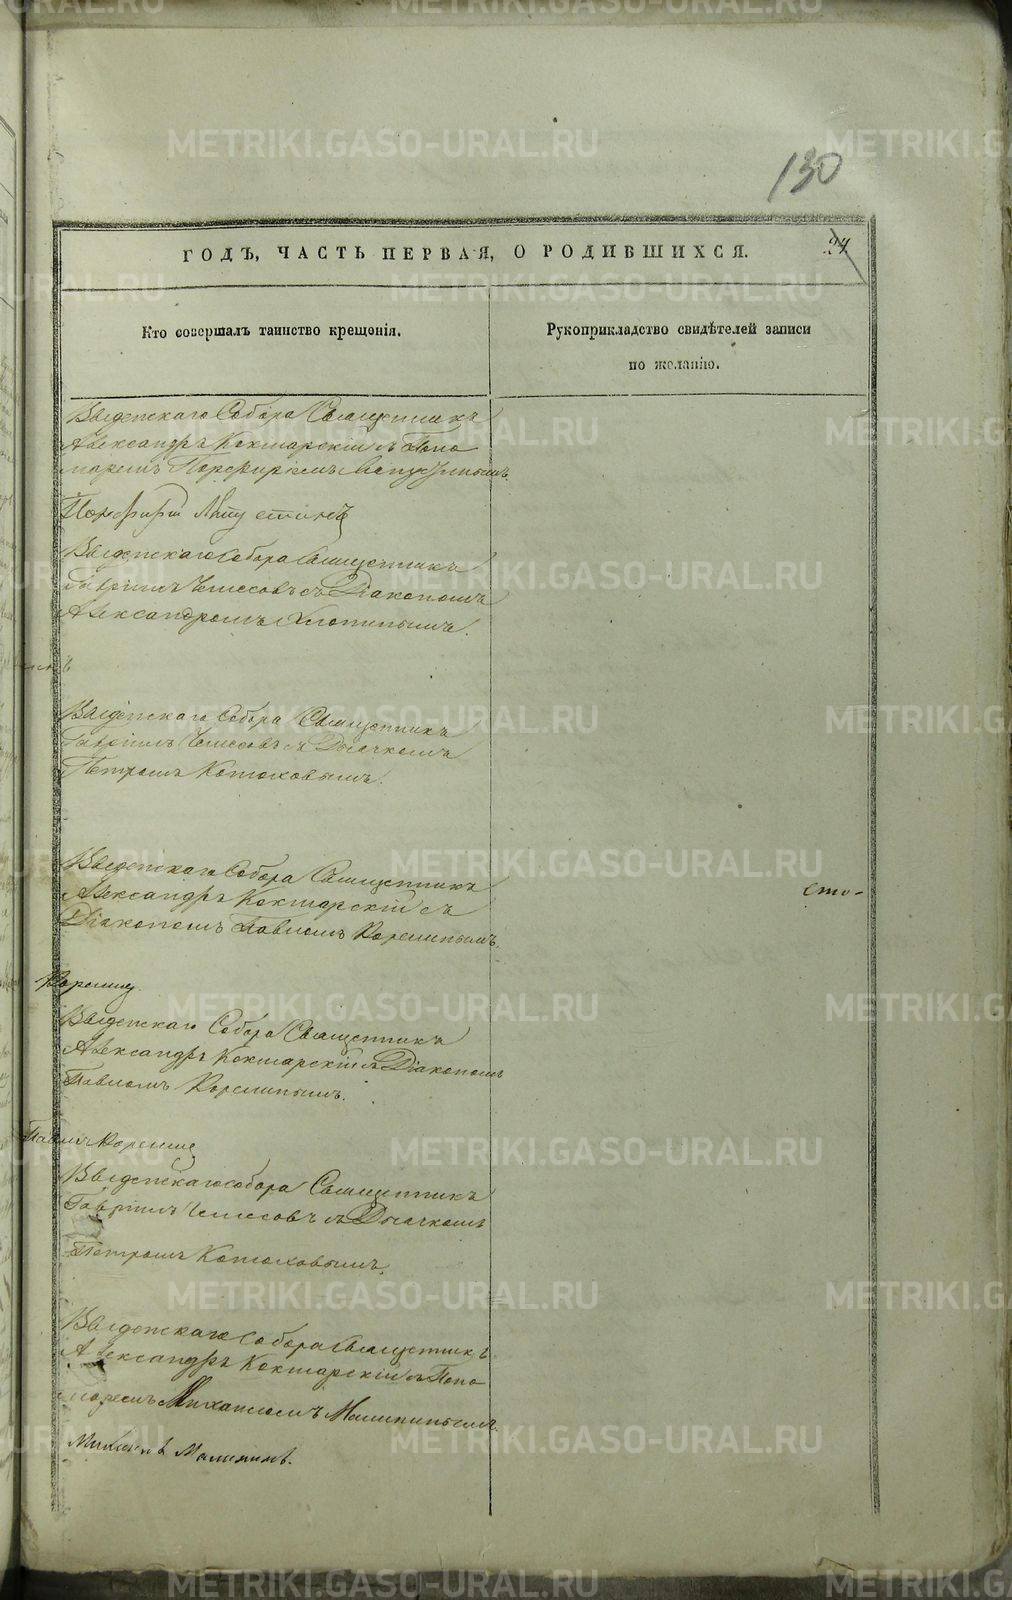 130
ГОДЪ, ЧАСТЬ ПЕРВАЯ, О РОДИВШИХСЯ.
24
Кто совершалъ таинство крещенія.
Рукоприкладство свидѣтелей записи
по желанію.
Введенскаго Собора Священникъ
Александръ Кокшарскій съ Поно
маремъ Порфиріемъ
Порфирій
Введенскаго Собора Священникъ
Гавріилъ съ Діакономъ
Александромъ Хлопинымъ.
Введенскаго Собора Священникъ
Гавріилъ съ Дьячкомъ
Петромъ Котюховымъ.
Введенскаго Собора Священникъ
Александръ Кокшарскій съ
Діакономъ Павломъ Корелинымъ.
сто-
Корелин
Введенскаго Собора Священникъ
Александръ Кокшарскій съ Діакономъ
Павломъ Корелинымъ.
Павлъ Корелин
Введенскаго собора Священникъ
Гавріилъ съ Дьячкомъ
Петромъ Котюховымъ.
Введенскаго Собора Священникъ
Александръ Кокшарскій съ Поно
маремъ Михаиломъ Малининымъ.
Михаилъ Малининъ.
METRIKI.GASO-URAL.RU